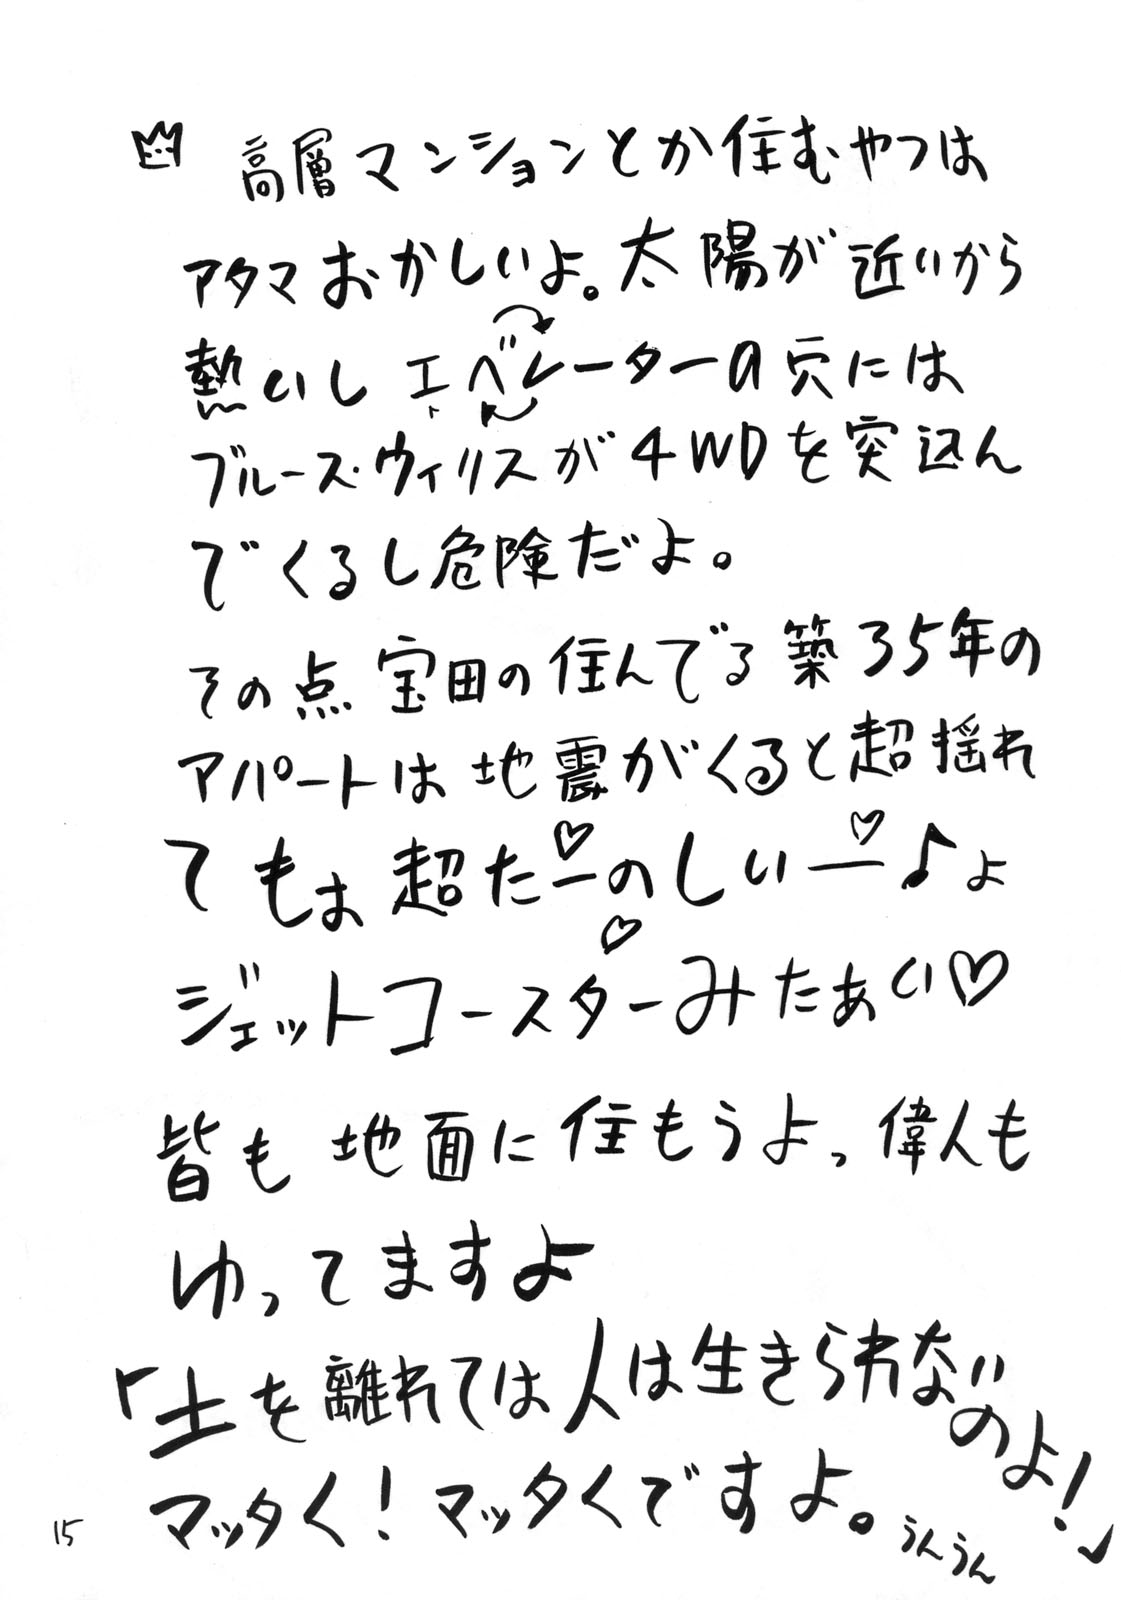 高層マンションとか住むやつは
アタマおかしいよ。太陽が近いから
熱いし エベレーターの穴には
ブルース・ウィリスが4WDを突込ん
でくるし危険だよ。
その点 宝田の住んでる築35年の
アパートは地震がくると超揺れ
てもぉ超たーのしいー♪ょ
ジェットコースターみたぁい♡
皆も地面に住もうよっ偉人も
ゆってますよ
「土を離れては人は生きられないのよ!」
マッタく!マッタくですよ。うんうん
15